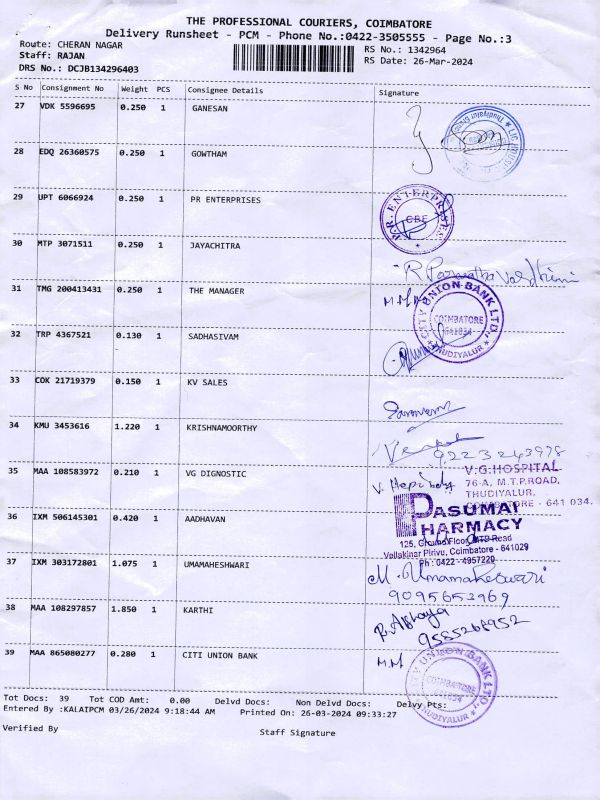 THE PROFESSIONAL COURIERS, COIMBATORE
Delivery Runsheet - PCM - Phone No.:0422-3505555 - Page No.:3
Route: CHERAN NAGAR RS No.: 1342964
Staff: RAJAN RS Date: 26-Mar-2024
DRS No.: DCJB134296403
S No Consignment No Weight PCS Consignee Details Signature
27 VDK 5596695 0.250 1 GANESAN
28 EDQ 26360575 0.250 1 GOWTHAM
29 UPT 6066924 0.250 1 PR ENTERPRISES
ENTERPRISES
CBE
30 MTP 3071511 0.250 1 JAYACHITRA
31 TMG 200413431 0.250 1 THE MANAGER
CITY UNION BANK LTD.
COIMBATORE
641034
THUDIYALUR
32 TRP 4367521 0.130 1 SADHASIVAM
33 COK 21719379 0.150 1 KV SALES
34 KMU 3453616 1.220 1 KRISHNAMOORTHY
9223243978
35 MAA 108583972 0.210 1 VG DIGNOSTIC
V.G.HOSPITAL
76-A, M.T.P.ROAD,
THUDIYALUR,
COIMBATORE - 641 034.
36 IXM 506145301 0.420 1 AADHAVAN
PASUMAI
PHARMACY
125, Ground Floor, MTP Road
Vellakinar Pirivu, Coimbatore - 641029
Ph : 0422 - 4957220
37 IXM 303172801 1.075 1 UMAMAHESHWARI
M. Umamakeswari
9095653969
38 MAA 108297857 1.850 1 KARTHI
9585268952
39 MAA 865080277 0.280 1 CITI UNION BANK
M.M
CITY UNION BANK LTD
COIMBATORE
THUDIYALUR
Tot Docs: 39 Tot COD Amt: 0.00 Delvd Docs: Non Delvd Docs: Delvy Pts:
Entered By :KALAIPCM 03/26/2024 9:18:44 AM Printed On: 26-03-2024 09:33:27
Verified By Staff Signature